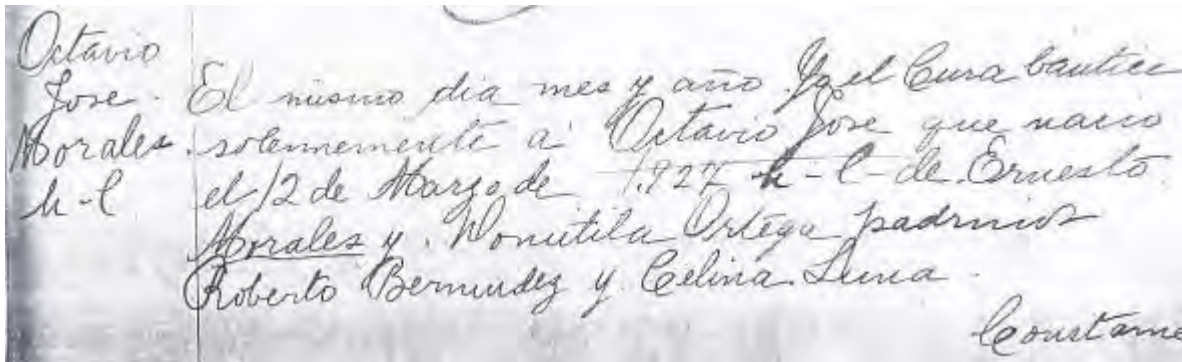 Octavio
Jose
Morales
h-l
El mismo dia mes y año Yo el Cura bautice
solemnemente a Octavio Jose que nacio
el 12 de Marzo de 1.927 h-l-de Ernesto
Morales y Domitila Ortega padrinos
Roberto Bermudez y Celina Luna.